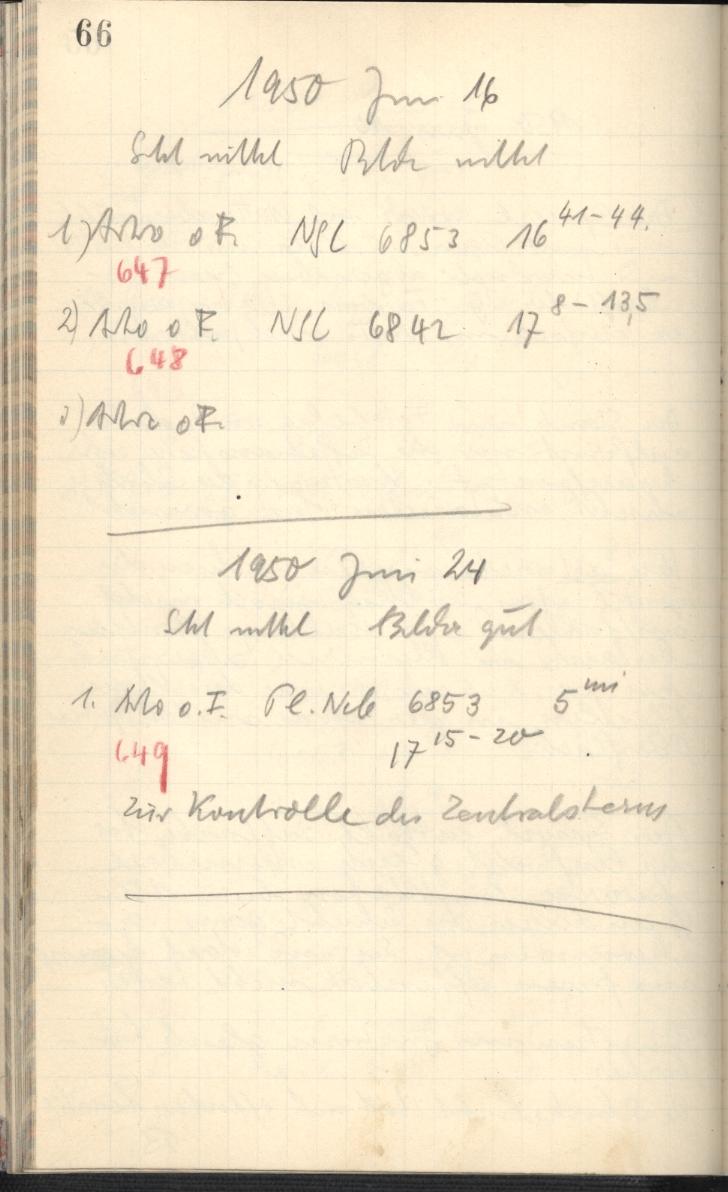 66
1950 Juni 16
Scht mittel Bilder mittel
1) Astro o F. NGC 6853 16 41-44.
647
2) Astro o F. NGC 6842 17 8-13,5
648
3) Astro o F.
1950 Juni 24
Scht mittel Bilder gut
1. Astro o. F. Pl. Neb 6853 5 min
649 17 15-20
zur Kontrolle des Zentralsterns